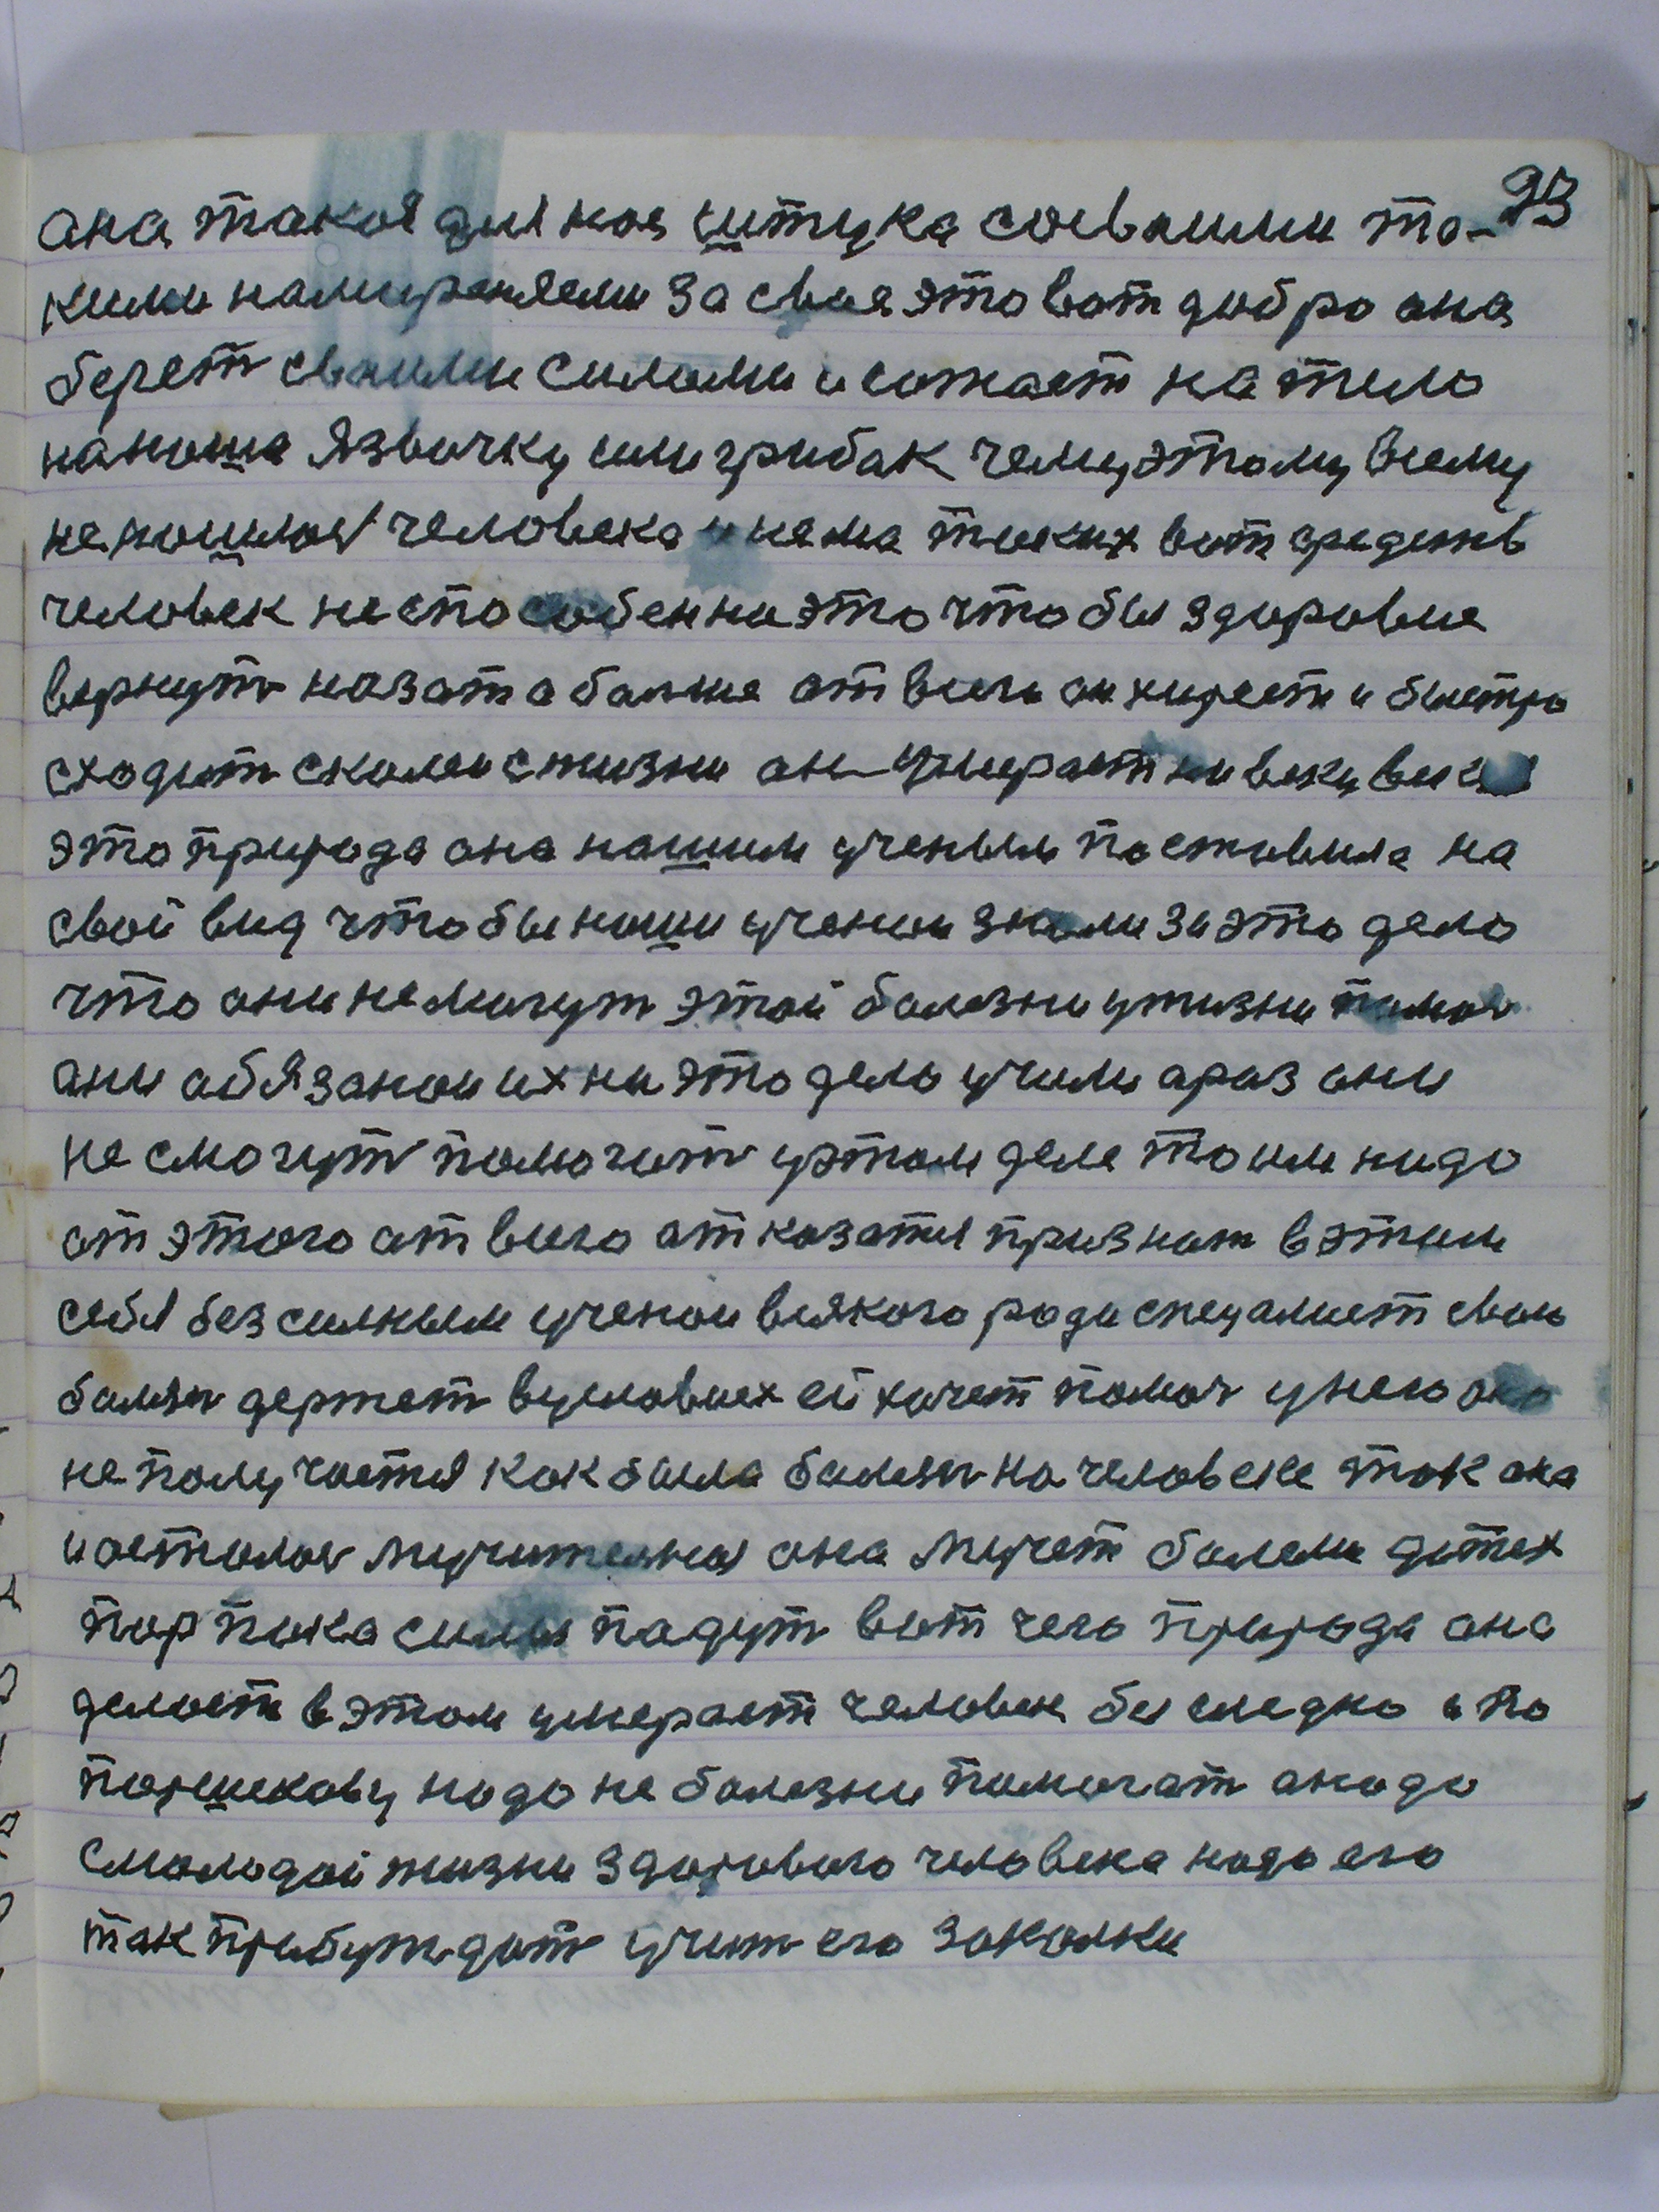 93
ана такоя для нас штука соеваими та-
кими намиренями за свае это вот добро ана
берет сваими силами и сажает на тело
на наша язвачку или грибак чему этому всему
не нашлос человека и нема таких вот средств
человек не способен на это что бы здоровие
вернут назат а балше от всего он хиреет и быстро
сходит сколеи с жизни он умирает на веки веков
это природа она нашим ученым поставила на
свой вид что бы наши учении знали за это дело
что ани не могут этой балезни у жизни памоч
ани абязанои их на это дело учили а раз они
не смогут помогит у этом деле то им надо
от этого ат всего атказатся признат в этом
себя безсилным ученои всякого рода спецалист свою
балезн держет в условиех ей хочет помоч у него оно
не получается как была балезн на человеке так ана
и осталос мучителная ана мучет балеми до тех
пор пока силы падут вот чего природа ана
делает в этом умерает человек бесследно а по
поршекову надо не балезни помогат а надо
смолодой жизни здорового человека надо его
так прибуждат учит его закалки